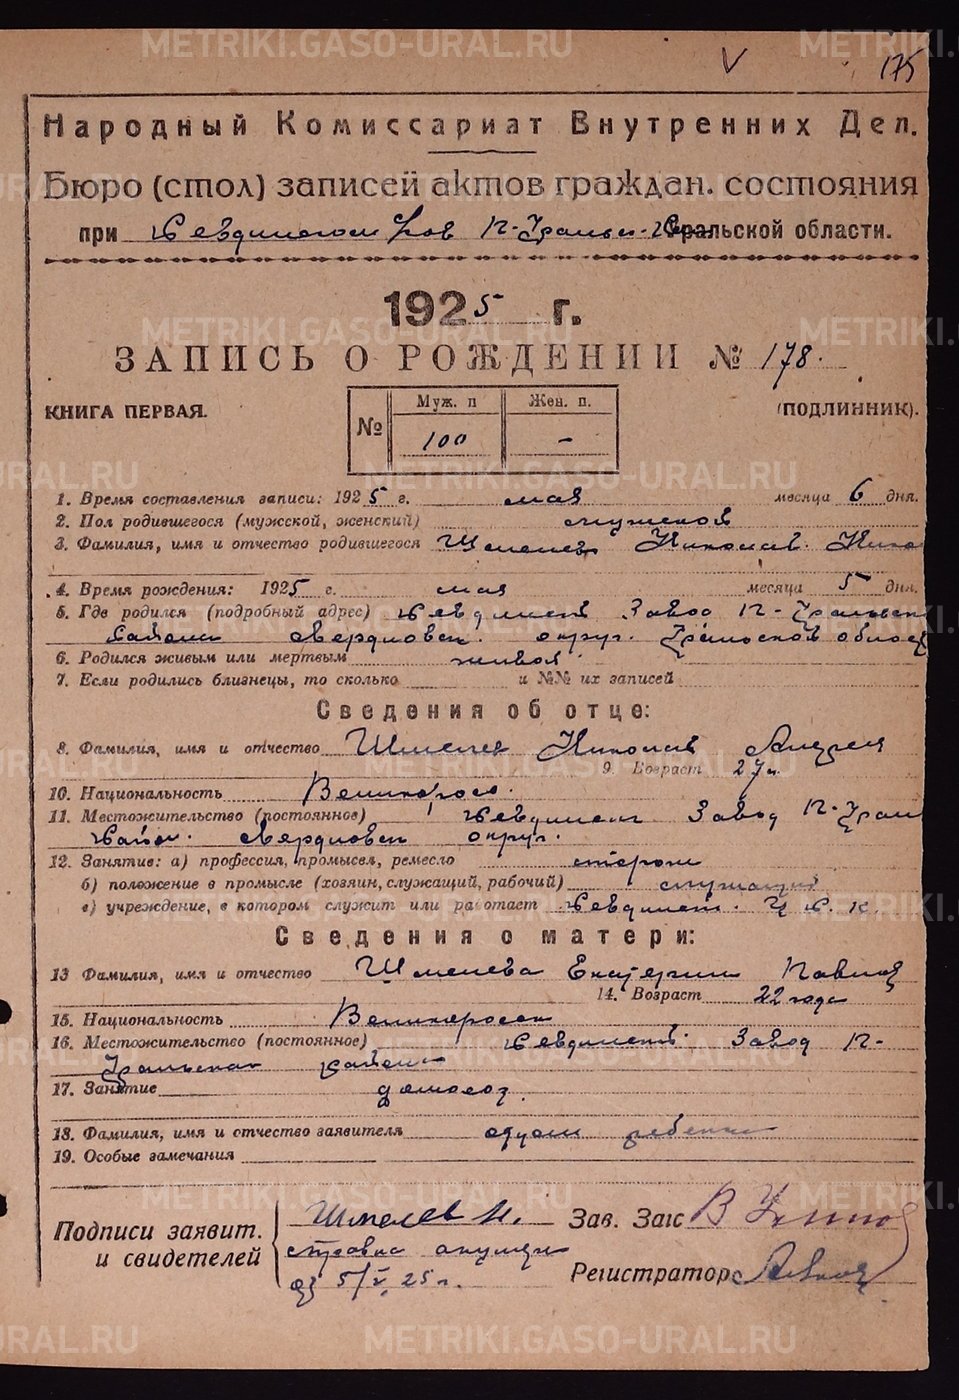 METRIKI.GASO-URAL.RU
175
Народный Комиссариат Внутренних Дел.
Бюро (стол) записей актов граждан. состояния
при Ревдинском П-Уральск. Уральской области.
1925 г.
ЗАПИСЬ О РОЖДЕНИИ № 178.
КНИГА ПЕРВАЯ.
(ПОДЛИННИК).
№ Муж. п Жен. п.
100 –
1. Время составления записи: 1925 г. мая месяца 6 дня.
2. Пол родившегося (мужской, женский) мужской
3. Фамилия, имя и отчество родившегося Шмелев Николай Нико
4. Время рождения: 1925 г. мая месяца 5 дня.
5. Где родился (подробный адрес) Ревдинск Завод П-Уральск
района свердловск. округ. Уральской област
6. Родился живым или мертвым живой
7. Если родились близнецы, то сколько и №№ их записей
Сведения об отце:
8. Фамилия, имя и отчество Шмелев Николай Андрея
9. Возраст 27 л.
10. Национальность Великоросс.
11. Местожительство (постоянное) Ревдинск Завод П-Урал
Район. свердловск округ.
12. Занятие: а) профессия, промысел, ремесло сторож
б) положение в промысле (хозяин, служащий, рабочий) служащий
в) учреждение, в котором служит или работает Ревдинск.
Сведения о матери:
13 Фамилия, имя и отчество Шмелева Екатерина Павлов
14. Возраст 22 года
15. Национальность Великоросск
16. Местожительство (постоянное) Ревдинск. Завод П-
Уральская район
17. Занятие домохоз.
18. Фамилия, имя и отчество заявителя отцом ребенка
19. Особые замечания
Подписи заявит. и свидетелей
Шмелев Н.
справка акушерк
от 5/V 25 г.
Зав. Загс
Регистратор